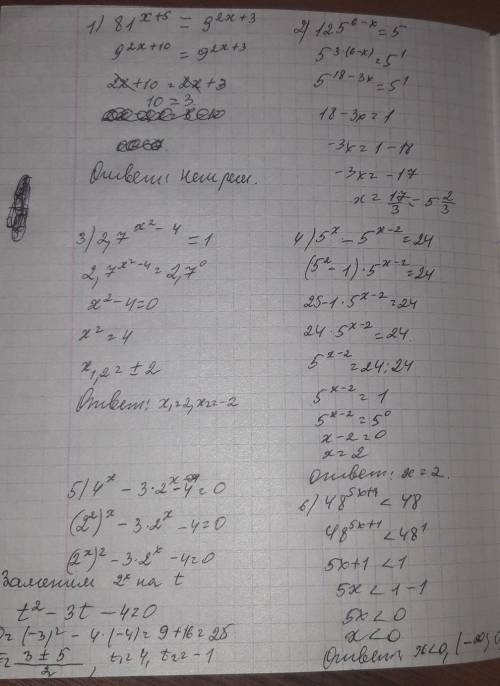 1) 81^{x+5} = 9^{2x+3}
9^{2x+10} = 9^{2x+3}
2x+10 = 2x+3
10 = 3
Ответ: нет реш.
2) 125^{6-x} = 5
5^{3·(6-x)} = 5^1
5^{18-3x} = 5^1
18-3x = 1
-3x = 1-18
-3x = -17
x = 17/3 = 5 2/3
3) 2,7^{x²-4} = 1
2,7^{x²-4} = 2,7^0
x²-4=0
x² = 4
x_{1,2} = ±2
Ответ: x₁=2, x₂=-2
4) 5^x - 5^{x-2} = 24
(5² - 1)·5^{x-2} = 24
25-1·5^{x-2} = 24
24·5^{x-2} = 24
5^{x-2} = 24:24
5^{x-2} = 1
5^{x-2} = 5^0
x-2=0
x=2
Ответ: x=2.
5) 4^x - 3·2^x - 4 = 0
(2²)^x - 3·2^x - 4 = 0
(2^x)² - 3·2^x - 4 = 0
Заменим 2^x на t
t² - 3t - 4 = 0
D = (-3)² - 4·(-4) = 9+16 = 25
t = (3±5)/2, t₁=4, t₂=-1
6) 48^{5x+1} < 48
48^{5x+1} < 48^1
5x+1 < 1
5x < 1-1
5x < 0
x < 0
Ответ: x<0, (-∞; 0